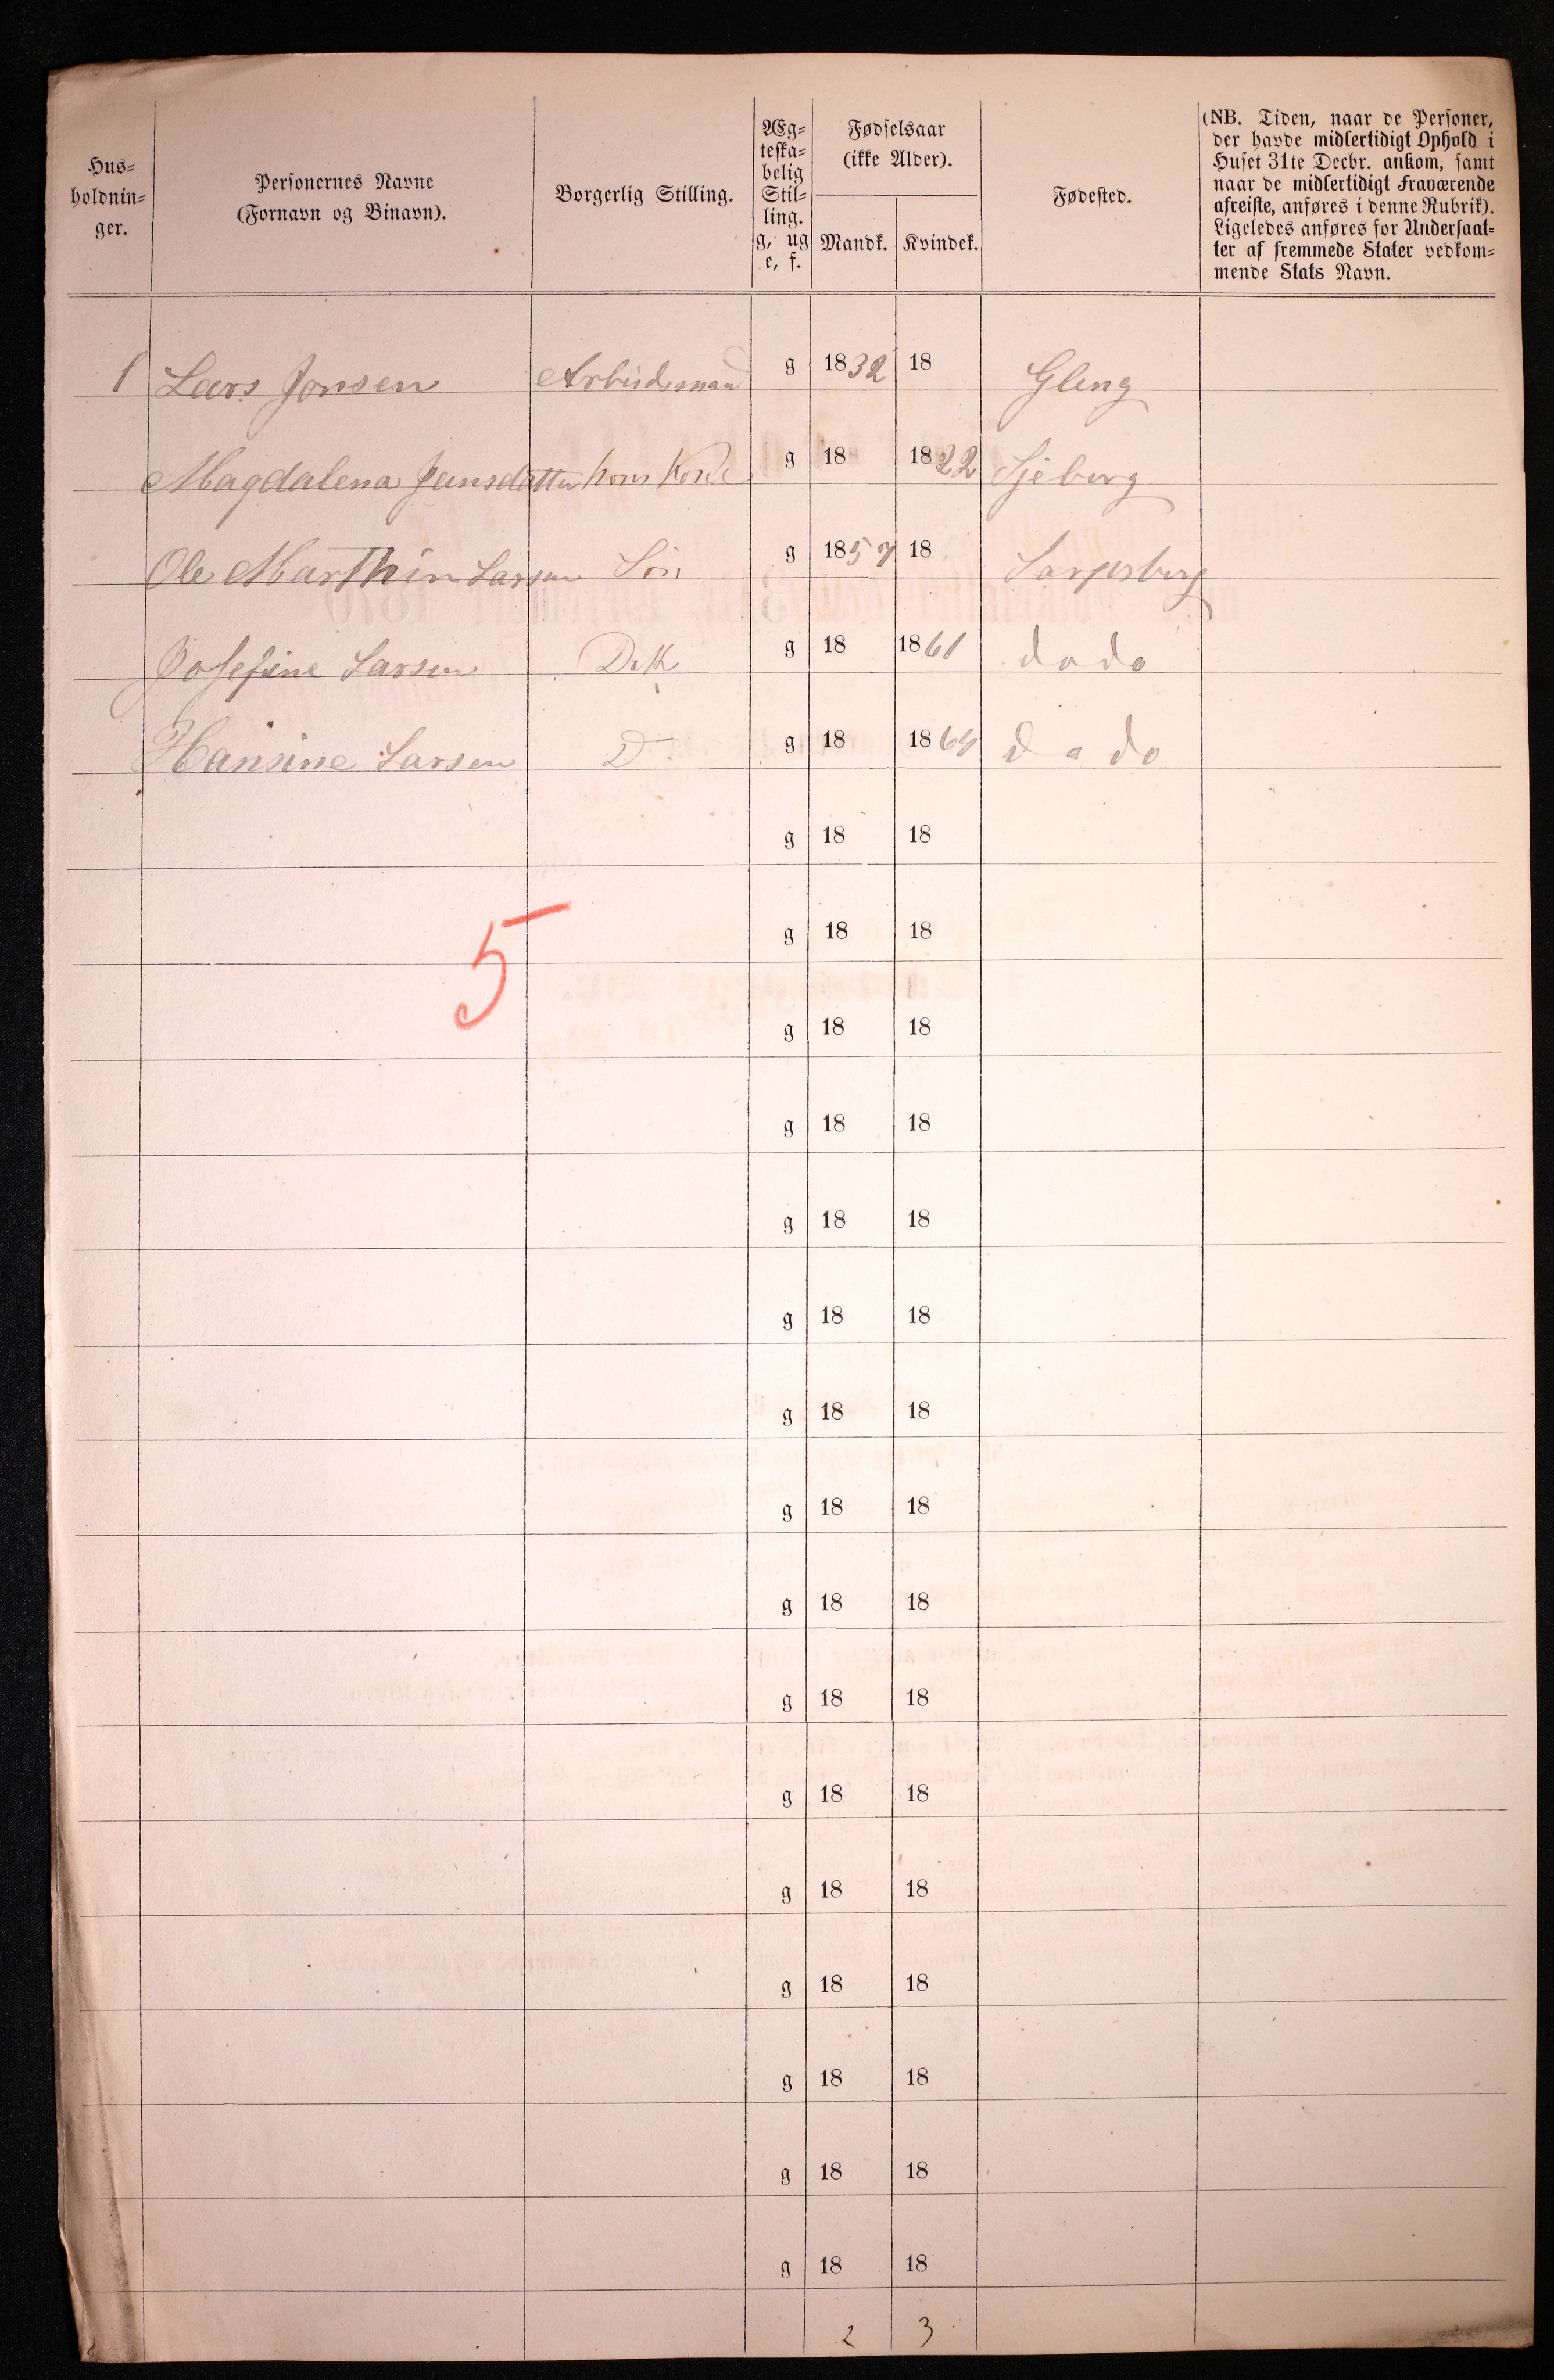 Hus=
holdnin=
ger.
Personernes Navne
(Fornavn og Binavn).
Borgerlig Stilling.
Æg=
teska=
belig
Stil=
ling.
g, ug
e, f.
Fødselsaar
(ikke Alder).
Mandk. Kvindek.
Fødested.
(NB. Tiden, naar de Personer,
der havde midlertidigt Ophold i
Huset 31te Decbr. ankom, samt
naar de midlertidigt Fraværende
afreiste, anføres i denne Rubrik).
Ligeledes anføres for Undersaat=
ter af fremmede Stater vedkom=
mende Stats Navn.
1 Lars Jonsen Arbeidsmand g 1832 18 Gleng
Magdalena Jensdatter hans Kone g 18 1822 Sjeberg
Ole Marthin Larsen Søn g 1857 18 Sarpsborg
Josefine Larsen g 18 1861 dodo
Hansine Larsen D. g 18 1864 do do
g 18 18
5 g 18 18
g 18 18
g 18 18
g 18 18
g 18 18
g 18 18
g 18 18
g 18 18
g 18 18
g 18 18
g 18 18
g 18 18
g 18 18
g 18 18
g 18 18
2 3